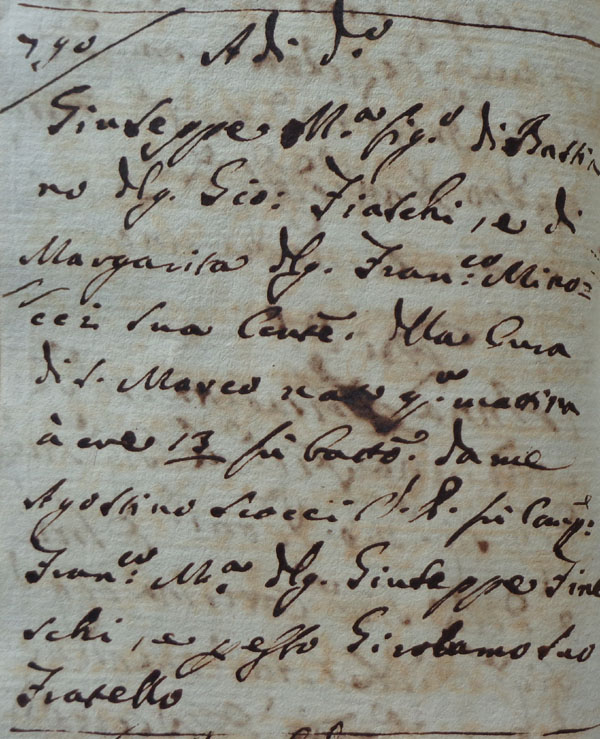 790 / A di d.o
Giuseppe M.a fig.o di Basti
no dl q. Gio: Fiaschi, e di
Margarita dl q. Fran.co Mino=
cci sua Consē. dlla Cura
di S. Marco nato q.a matina
à ore 13 fù battō. da me
Agostino Scocci fù Comp.e
Fran.co M.a dl q. Giuseppe Fia
schi, e pesso Girolamo suo
Fratello